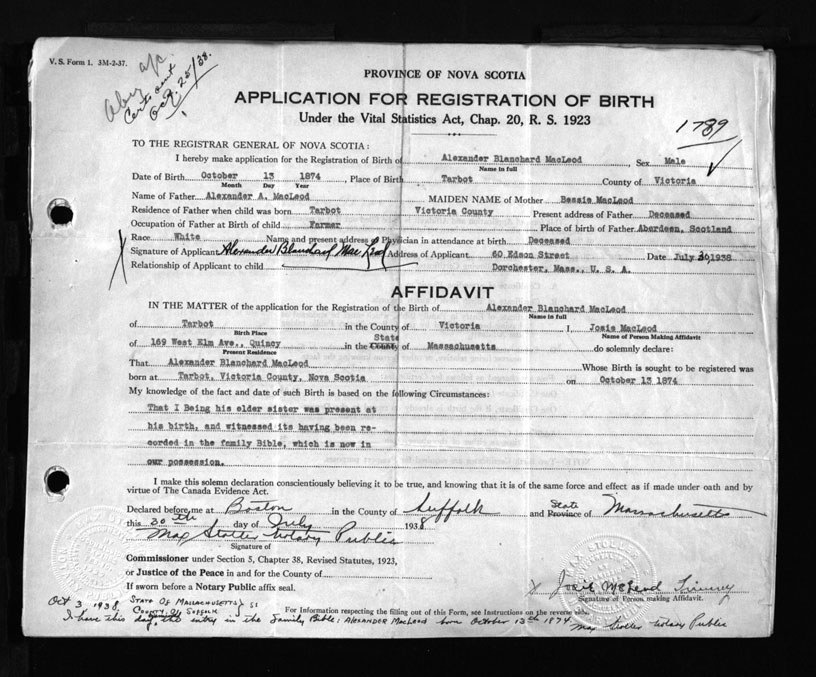 V. S. Form 1. 3M-2-37.
Certs sent
Oct. 25/38.
PROVINCE OF NOVA SCOTIA
APPLICATION FOR REGISTRATION OF BIRTH
Under the Vital Statistics Act, Chap. 20, R. S. 1923
1789
TO THE REGISTRAR GENERAL OF NOVA SCOTIA:
I hereby make application for the Registration of Birth of Alexander Blanchard MacLeod, Sex Male
Name in full
Date of Birth October 13 1874, Place of Birth Tarbot County of Victoria
Month Day Year
Name of Father Alexander A. MacLeod MAIDEN NAME of Mother Bessie MacLeod
Residence of Father when child was born Tarbot Victoria County Present address of Father Deceased
Occupation of Father at Birth of child Farmer Place of birth of Father Aberdeen, Scotland
Race White Name and present address of Physician in attendance at birth Deceased
Signature of Applicant Alexander Blanchard MacLeod Address of Applicant 60 Edson Street Date July 30 1938
Relationship of Applicant to child Dorchester, Mass., U. S. A.
AFFIDAVIT
IN THE MATTER of the application for the Registration of the Birth of Alexander Blanchard MacLeod
Name in full
of Tarbot in the County of Victoria I Josie MacLeod
Birth Place Name of Person Making Affidavit
State
of 169 West Elm Ave., Quincy in the County of Massachusetts do solemnly declare:
Present Residence
That Alexander Blanchard MacLeod Whose Birth is sought to be registered was
born at Tarbot, Victoria County, Nova Scotia on October 13 1874
My knowledge of the fact and date of such Birth is based on the following Circumstances:
That I Being his elder sister was present at
his birth, and witnessed its having been re-
corded in the family Bible, which is now in
our possession.
I make this solemn declaration conscientiously believing it to be true, and knowing that it is of the same force and effect as if made under oath and by
virtue of The Canada Evidence Act.
Declared before me at Boston in the County of Suffolk and State Province of Massachusetts
this 30th day of July 1938
Max Stoller Notary Public
Signature of
Commissioner under Section 5, Chapter 38, Revised Statutes, 1923,
or Justice of the Peace in and for the County of
If sworn before a Notary Public affix seal.
MAX STOLLER
X Josie McLeod
Signature of Person making Affidavit.
Oct 3, 1938. STATE OF MASSACHUSETTS } SS
COUNTY OF SUFFOLK
For Information respecting the filling out of this Form, see Instructions on the reverse side.
I have this day the entry in the Family Bible: ALEXANDER MacLeod born October 13th 1874
Max Stoller Notary Public